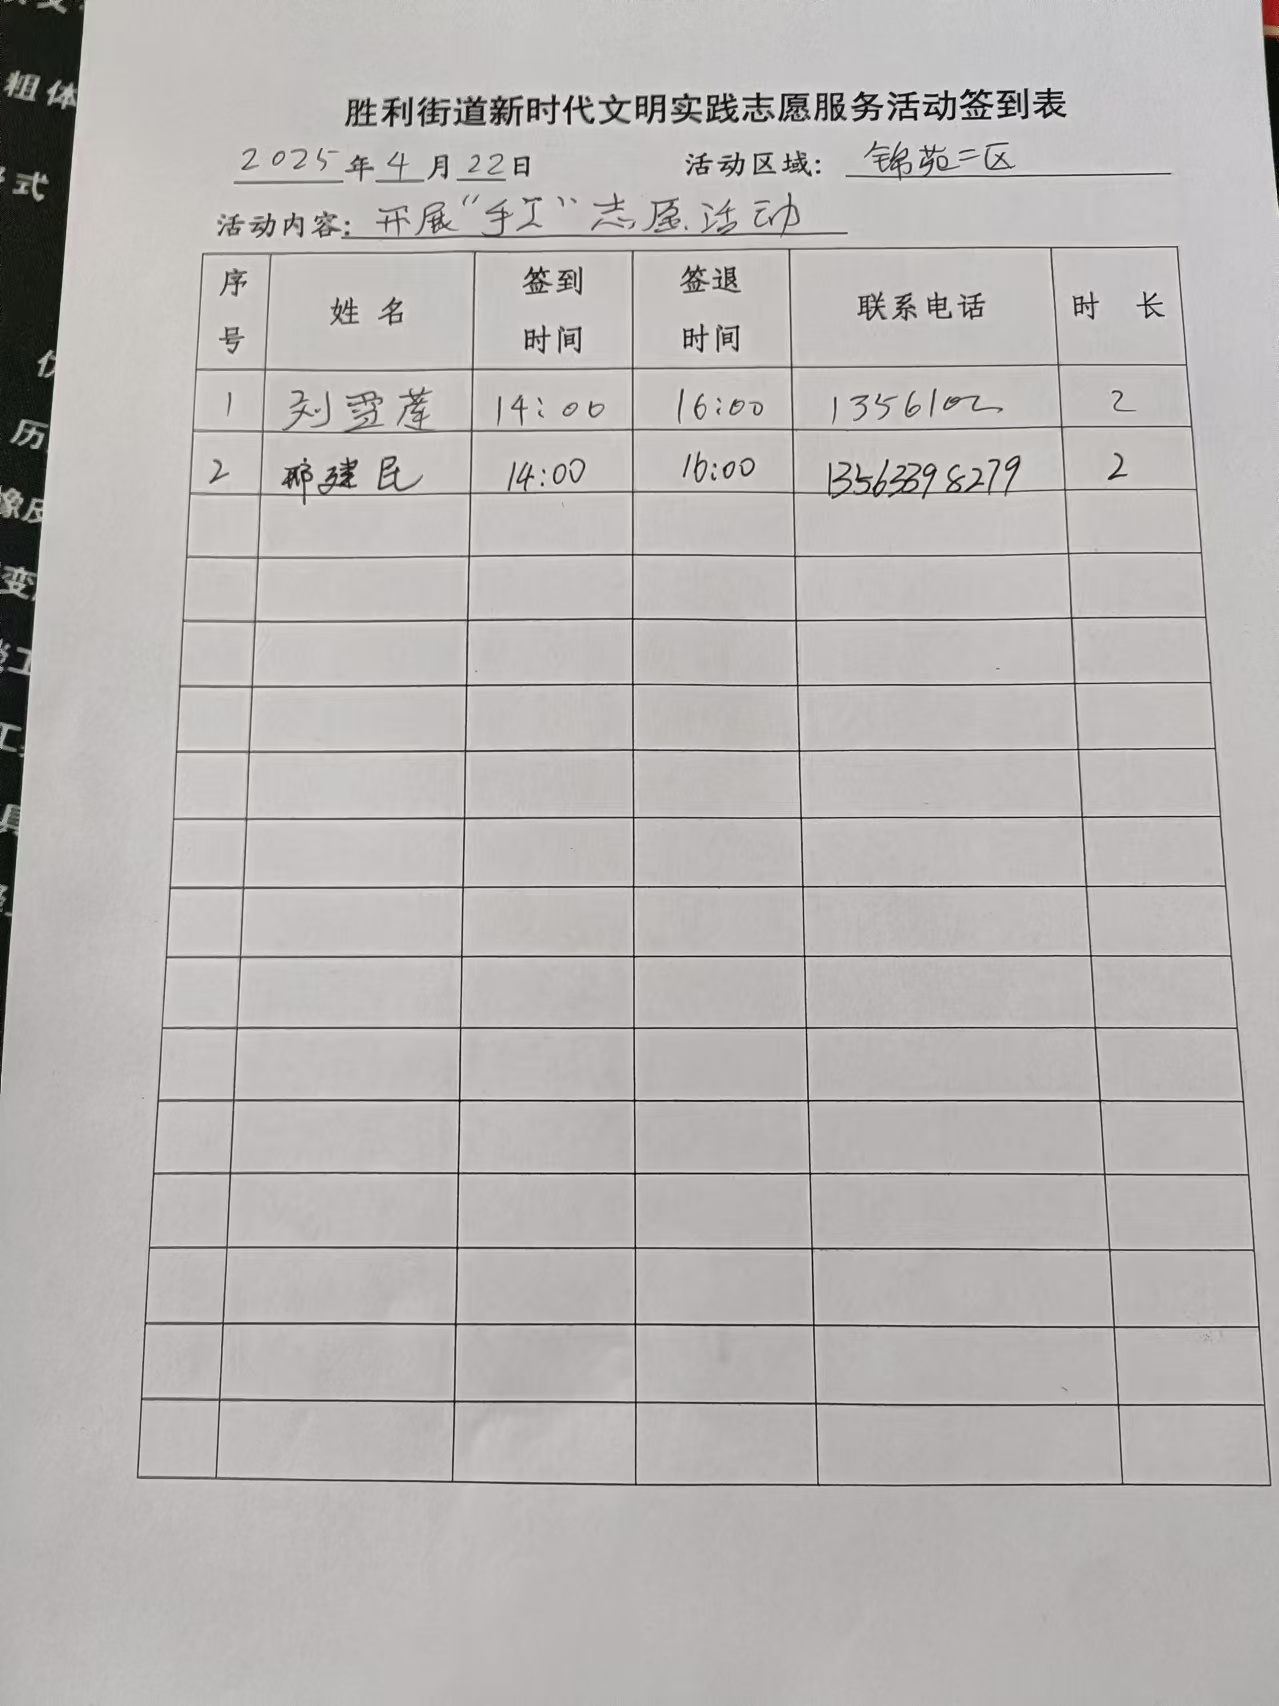 粗体
式
历
橡皮
变
工
工
具
胜利街道新时代文明实践志愿服务活动签到表
2025年4月22日 活动区域：锦苑二区
活动内容：开展“手工”志愿活动
序号 姓名 签到时间 签退时间 联系电话 时长
1 刘雪莲 14:00 16:00 1356102 2
2 邢建民 14:00 16:00 13563398279 2